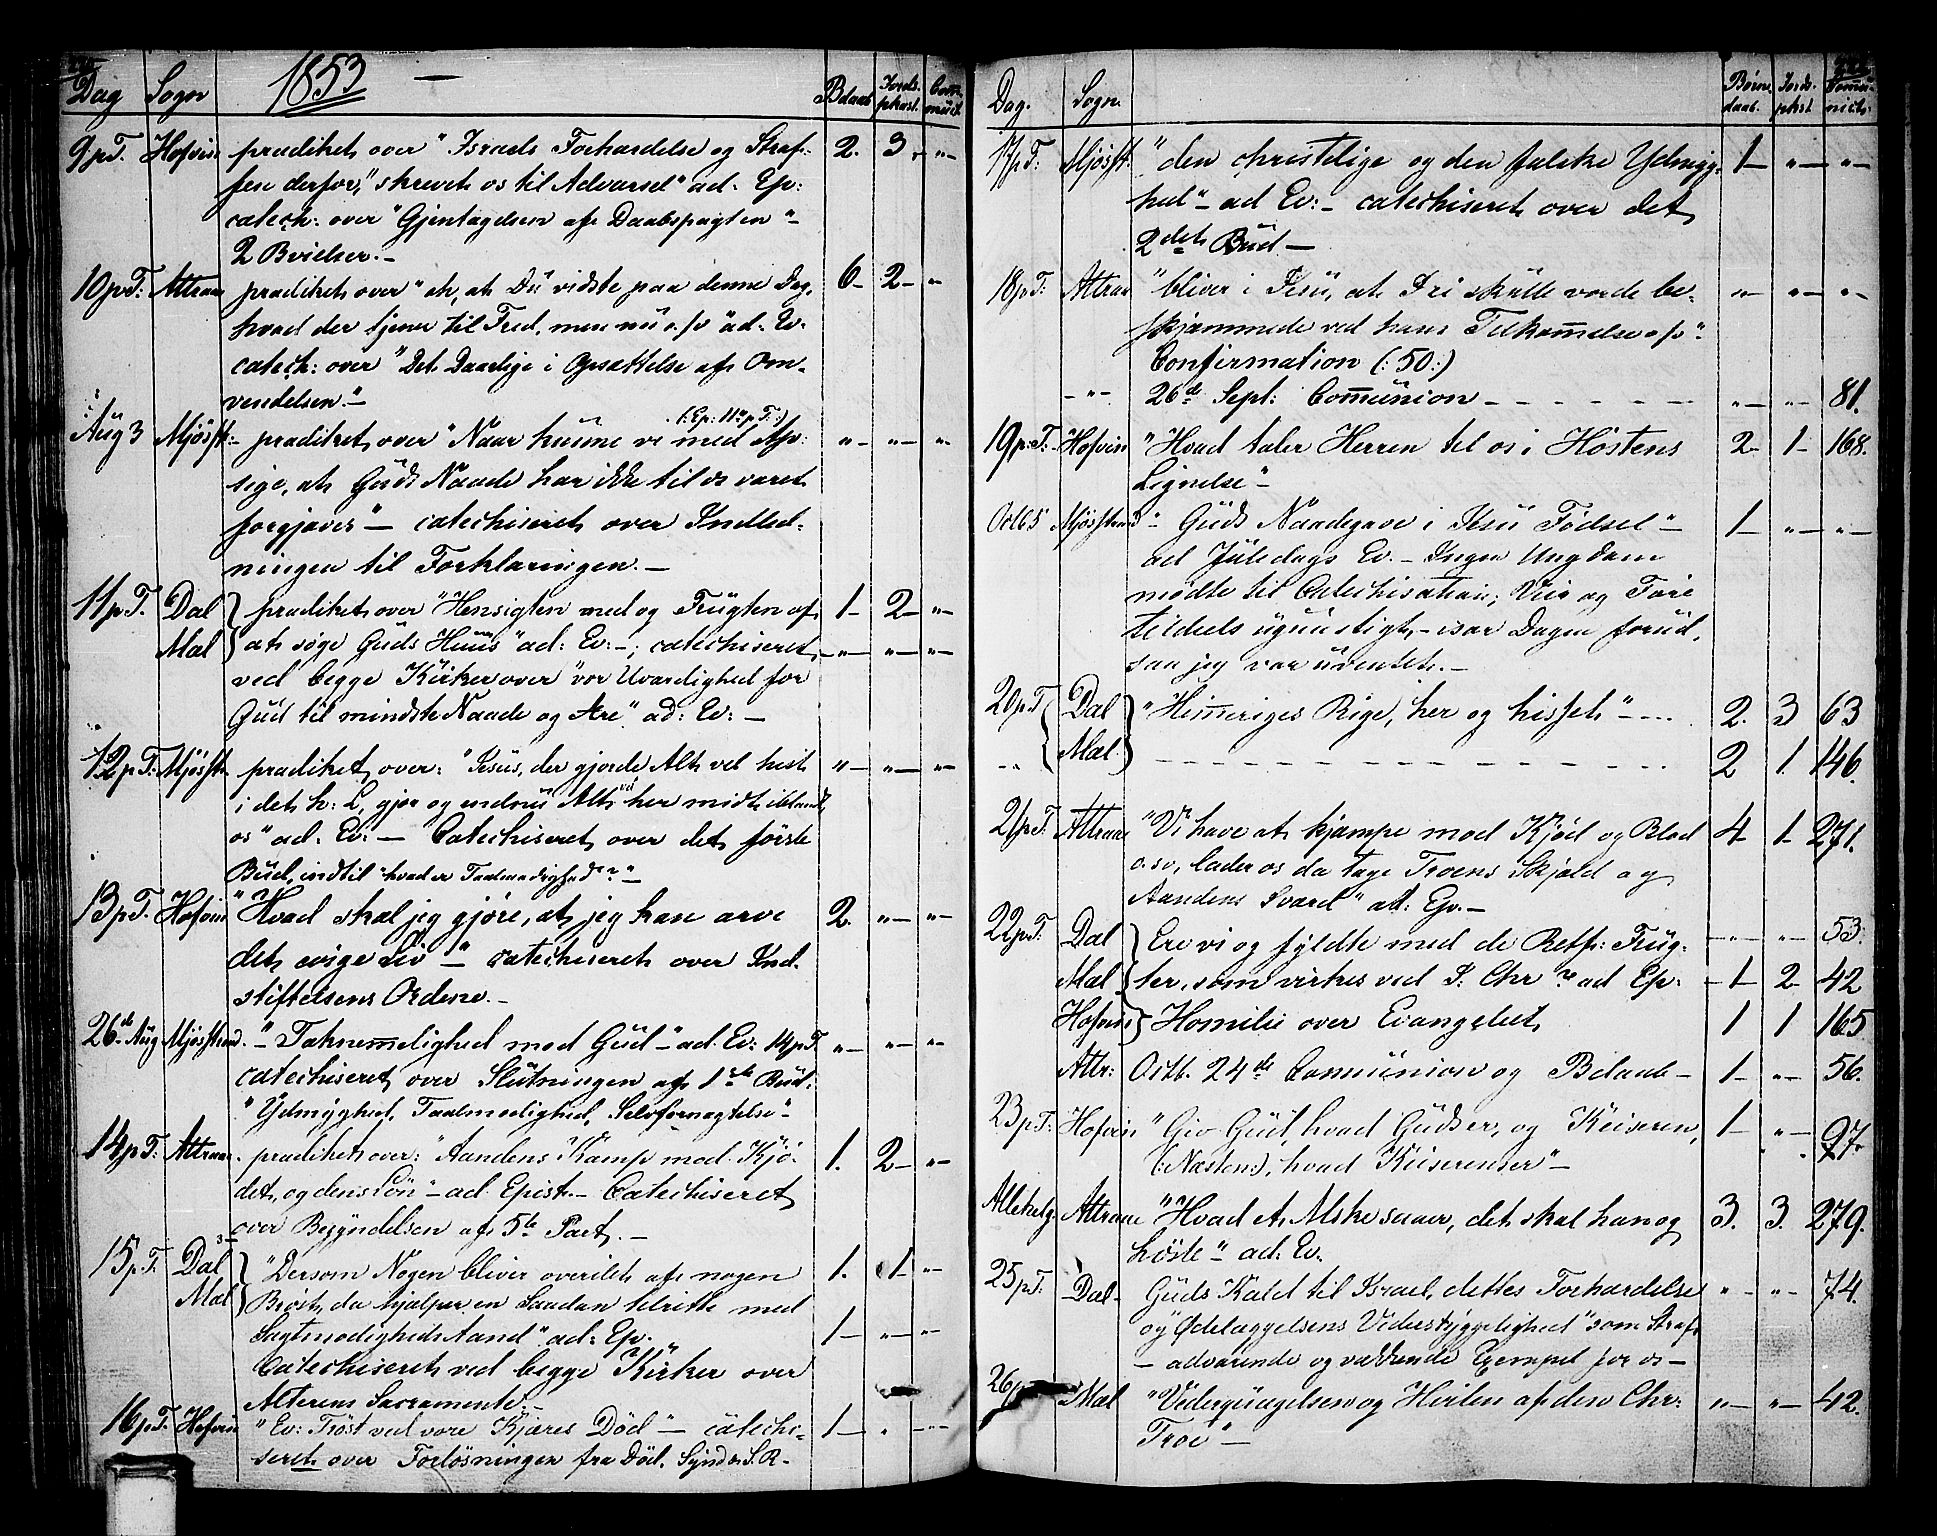 Dag Sogn 1853 — Bdaab Jords-phast. Com-muic.
9 p T. Hofvin prædiket over "Israels Forhærdelse og Straf- 2. 3. "-
fen derfor," skrevet os til Advarsel" ad. Ep:
catech: over "Gjentagelsen af Daabspagten"-
2 Bvielser.-
10 p T. Attraae prædiket over "ak, at Du vidste paa denne Dag, 6- 2- "-
hvad der tjener til Fred, men nu o.s.v" ad. Ev:
catech: over "Det Daarlige i Opsættelse af Om-
vendelsen."-
(: Ep: 11 p T:)
Aug 3 Mjösst:- prædiket over "Naar kunne vi med Af- "- "- "-
sige, at Guds Naade har ikke til os været
forgjæves"- catechiseret over Indled-
ningen til Forklaringen.-
11 p T. Dal prædiket over "Hensigten med og Frugten af 1- 2- "-
Mæl at søge Guds Huus" ad: Ev:-; catechiseret "- "- "-
ved begge Kirker over "vor Uværdighed for
Gud til mindste Naade og Ære" ad: Ev:-
12 p T: Mjösst. prædiket over: "Jesus, der gjorde Alt vel hist "- "- "-
i det h: L, gjør og endnu Alt vel her midt iblandt
os" ad: Ev:- Catechiseret over det første
Bud, indtil "hvad er Taalmodighed?"-
13 p T. Hofvin "Hvad skal jeg gjöre, at jeg kan arve 2. "- "-
det evige Liv"- catechiseret over Ind-
stiftelsens Ordene.-
26de Aug Mjösstrand. "Taknemelighed mod Gud" ad. Ev: 14 p T "- "- "-
catechiseret over Slutningen af 1ste Bud.
"Ydmyghed, Taalmodighed, Selvfornægtelse"-
14 p T: Attraae. prædiket over: "Aandens Kamp mod Kjö- 1. 2- "-
det, og dens Lön"- ad. Epist.- Catechiseret
over Begyndelsen af 5te Part.-
15 p. T. Dal "Dersom Nogen bliver overilet af nogen 1. 1- "-
Mæl Bröst, da hjælper en Saadan tilrette med
Sagtmodigheds Aand" ad: Ep. 1- "- "-
Catechiseret ved begge Kirker over
Alterens Sacramente.-
16 p. T. Hofvin "Ev: Tröst ved vore Kjæres Död"- catechi- 1- "- "-
seret over Forlösningen fra Död, Synd o.s.v.-
Dag. Sogn. Børne-daab. Jords-phst. Comu-nicts:
17 p T: Mjösst. "den christelige og den falske Ydmyg- 1- "- "-
hed"- ad Ev:- catechiseret over det
2det Bud-
18 p T: Attraae "bliver i Jesu, at I ei skulle vorde be- "- "- "-
skjæmmede ved hans Tilkommelse o.s.v."
Confirmation (: 50 :)
-"- 26de Sept: Communion - - - - - - "- "- 81.
19 p. T. Hofvin "Hvad taler Herren til os i Höstens 2- 1- 168.
Lignelse"-
Octb 5 Mjösstrand "Guds Naadegave i Jesu Födsel"- 1- "- "-
ad Juledags Ev.- Ingen Ungdom
mödte til Catechisation; Veir og Före
tildeels ugunstigt,- især Dagen forud,
saa jeg var uventet.-
20 p T Dal "Himmeriges Rige, her og hisset"- ... 2. 3 63
" Mæl. - - - - - - - - - 2 1. 146.
21 p T. Attraae "Vi have at kjæmpe mod Kjöd og Blod 4- 1- 271.
o.s.v, lader os da tage Troens Skjold og
Aandens Sværd" ad: Ep.-
22 p T. Dal Ere vi og fyldte med de Retf: Frug- -"- "- 53.
Mæl ter, som virkes ved J: Chr?" ad Ep:- 1- 2- 42
Hofvin Homilie over Evangeliet, 1 1 165
Attr: Octb. 24de Communion og Bdaab- 1- "- 56.
23 p T: Hofvin "Giv Gud, hvad Guds er, og Keiseren, 1- "- 97.
(: Næsten:), hvad Keiserens er"-
Allehelg. Attraae "Hvad et Mske saaer, det skal han og 3. 3. 279.
höste" ad: Ev.
25 p T: Dal- Guds Kald til Israel, dettes Forhærdelse "- "- 74.
og Ødelæggelsens Vederstyggelighed" som Straf
- advarende og vækkende Exempel for os-
26 p Mæl "Vederqvægelsen og Hvilen af den Chr- "- "- 42.
Troe"-